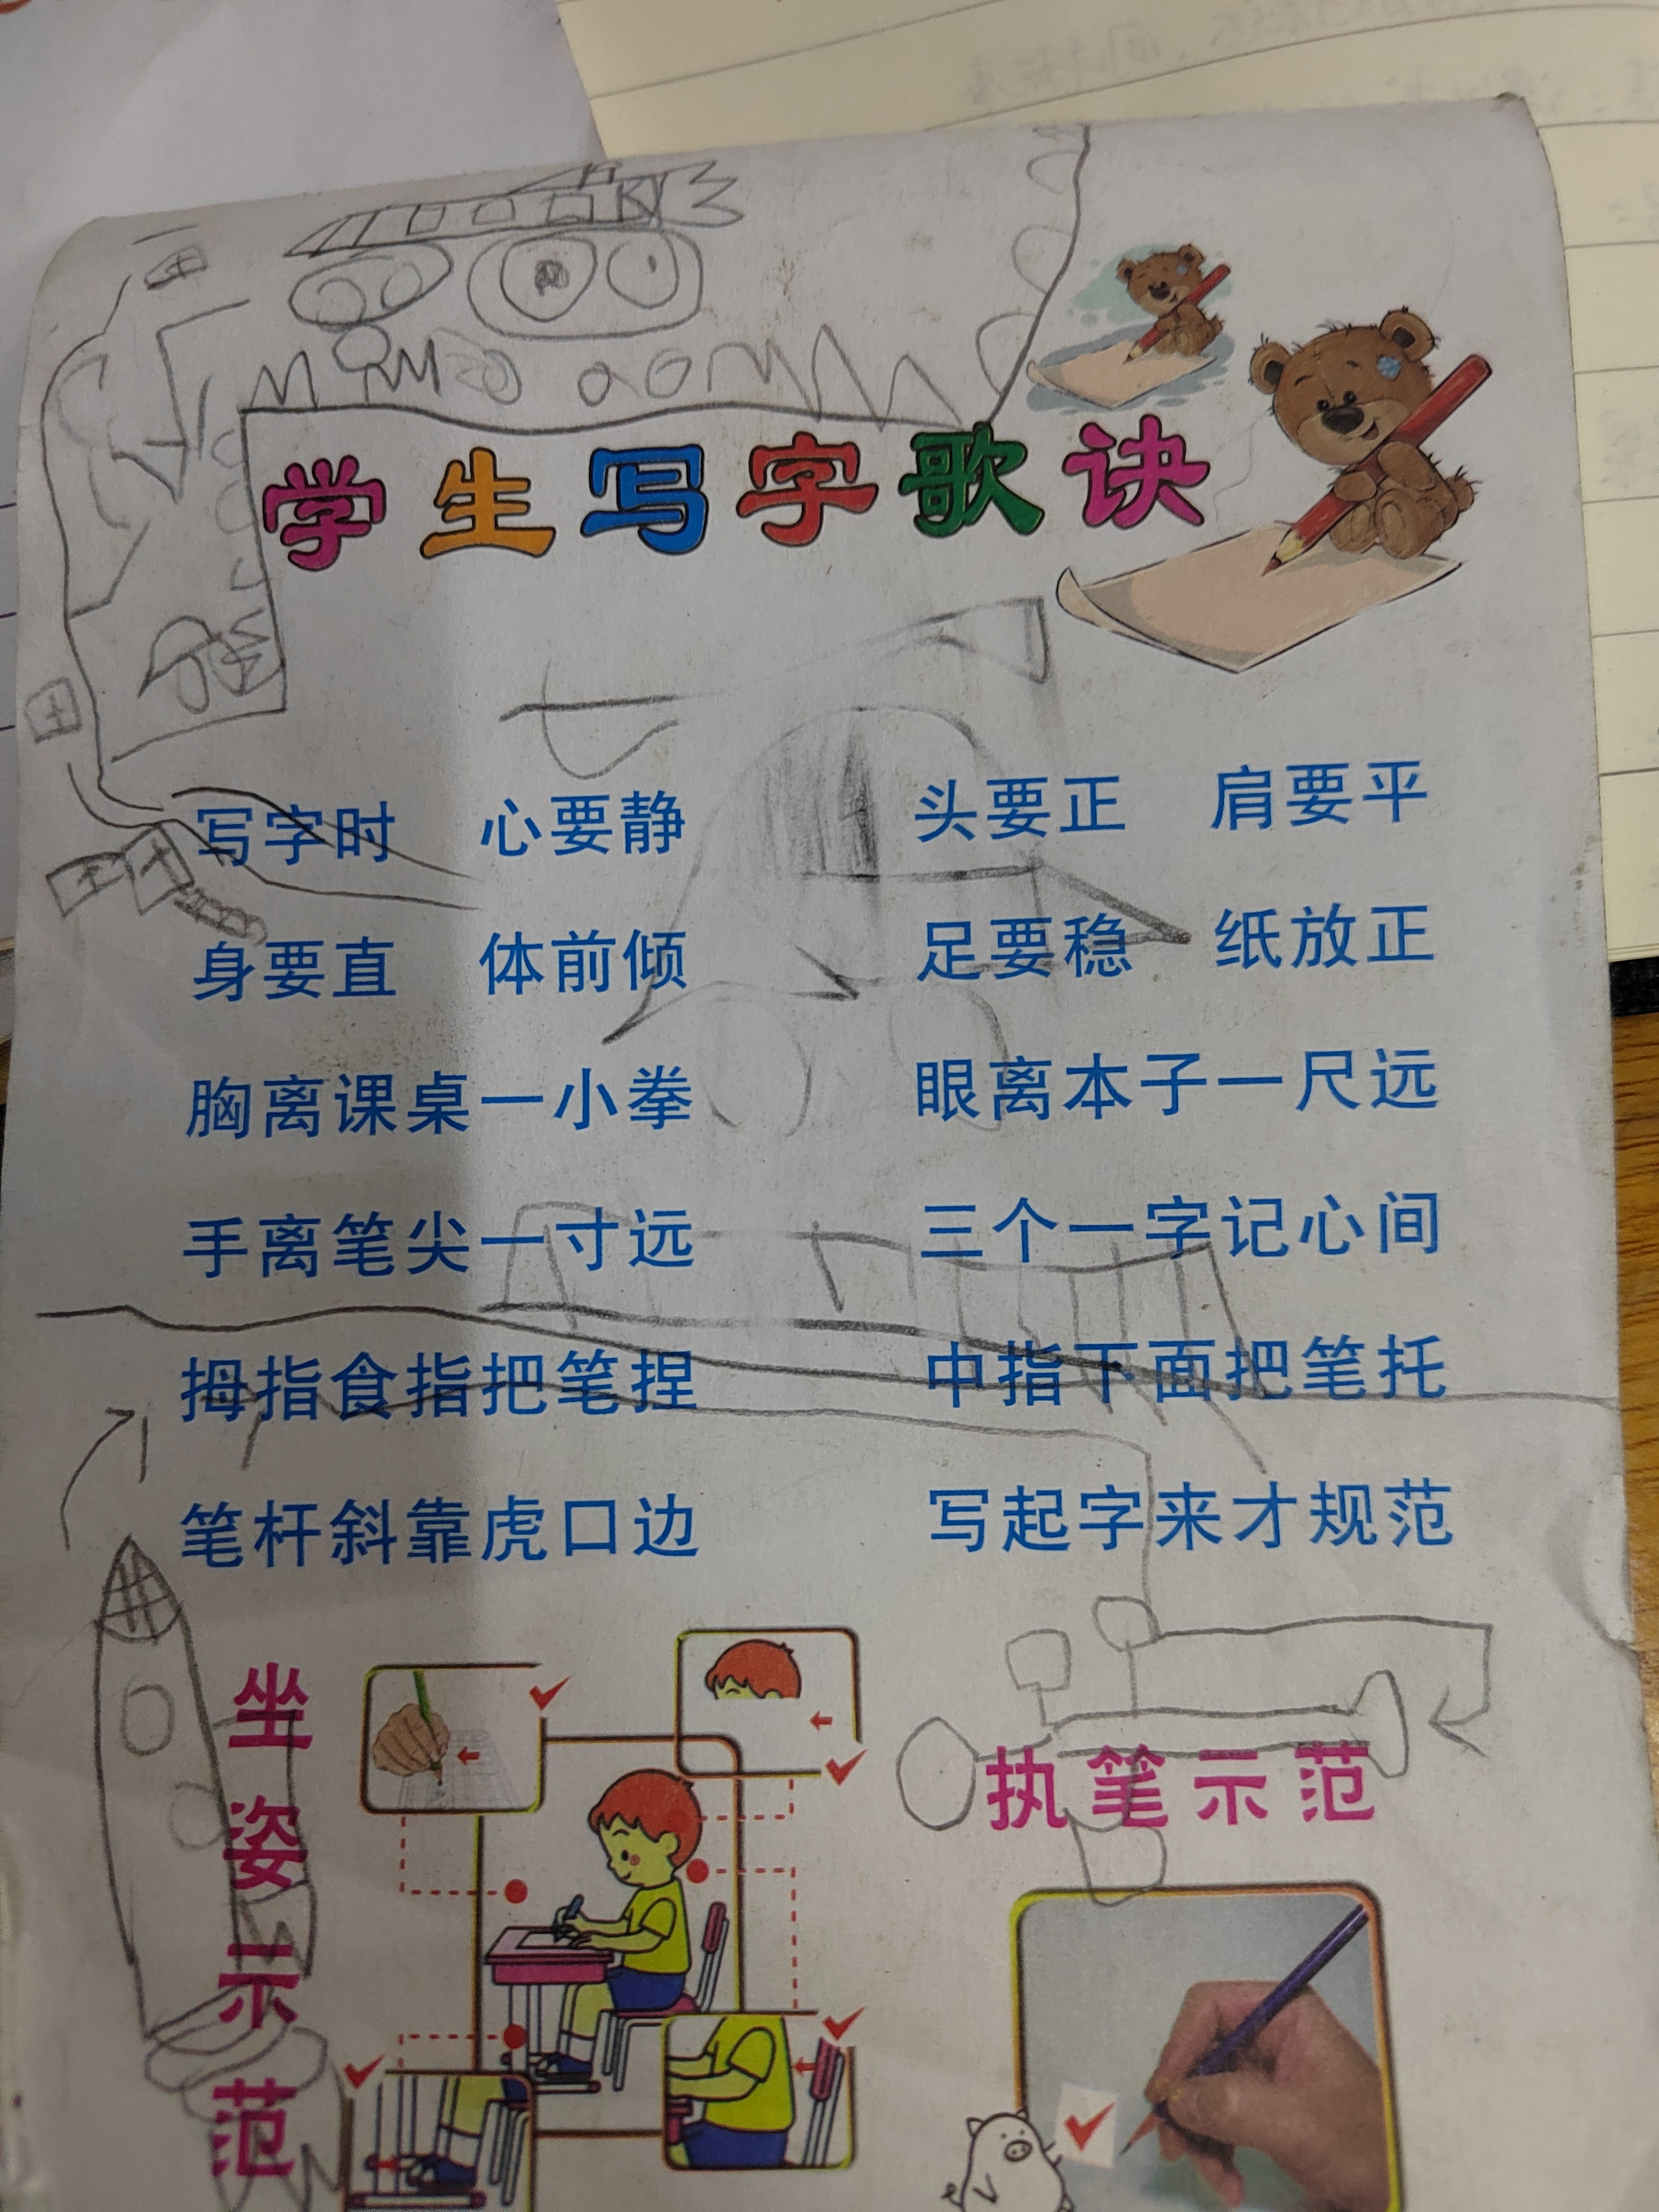 学生写字歌诀
写字时 心要静 头要正 肩要平
身要直 体前倾 足要稳 纸放正
胸离课桌一小拳 眼离本子一尺远
手离笔尖一寸远 三个一字记心间
拇指食指把笔捏 中指下面把笔托
笔杆斜靠虎口边 写起字来才规范
坐姿示范
执笔示范